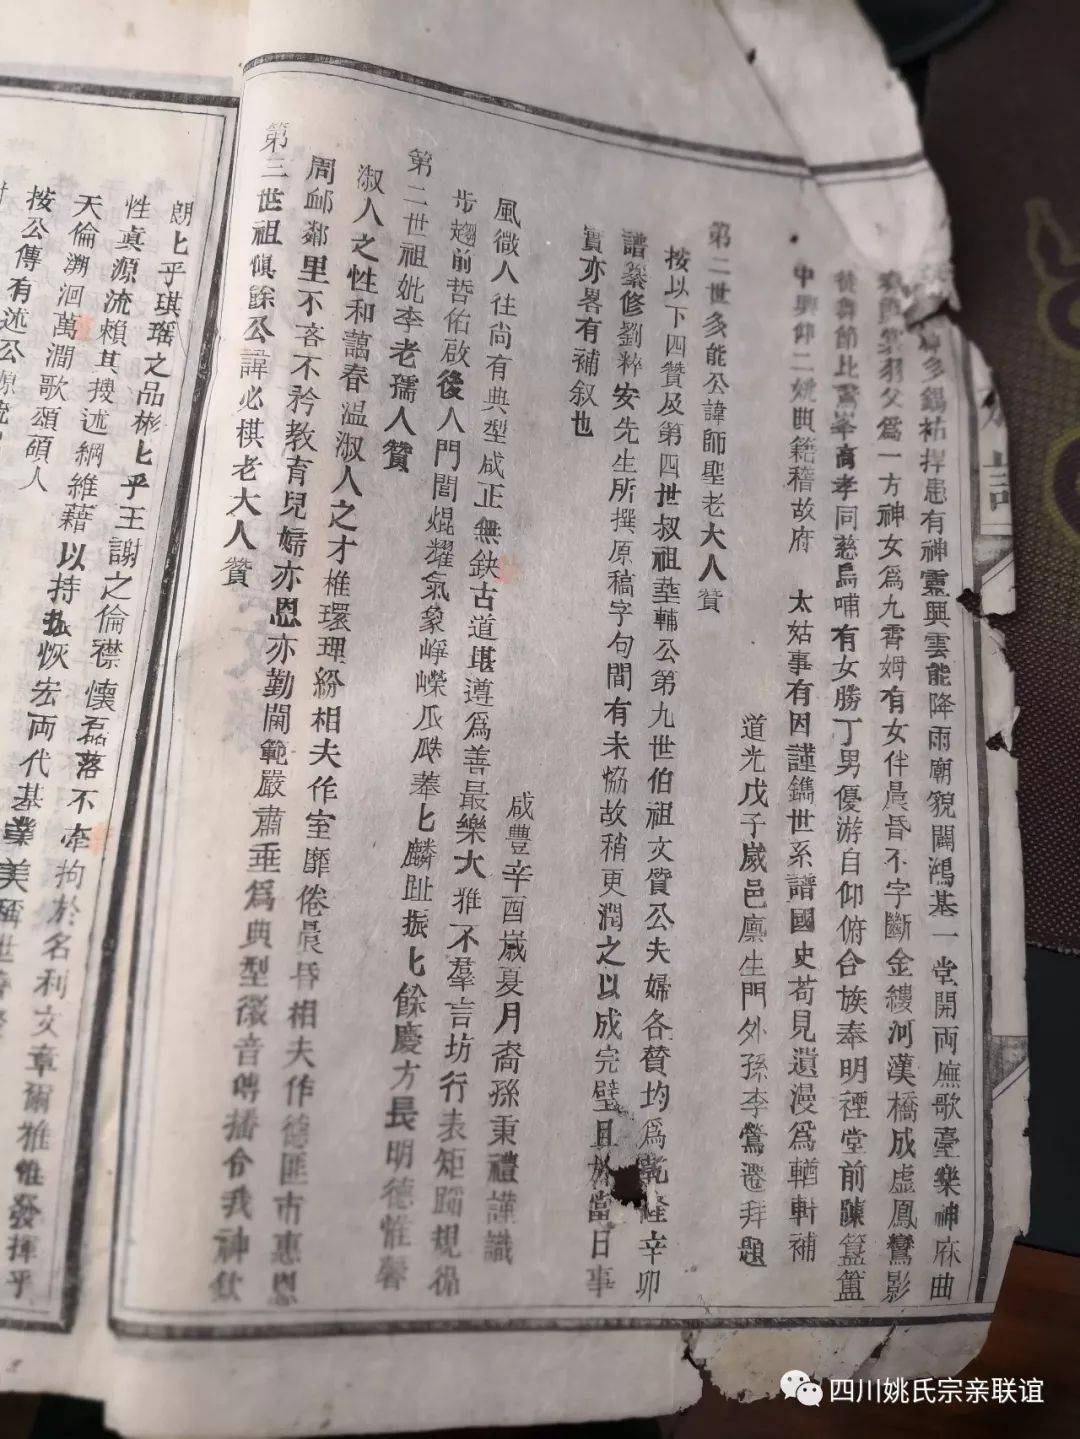 多錫祜捍患有神靈興雲能降雨廟貌闢鴻基一堂開兩廡歌臺樂神庥曲
父爲一方神女爲九霄姆有女伴晨昏不字斷金縷河漢橋成虛鳳鸞影
節比鷲峯高孝同慈烏哺有女勝丁男優游自仰俯合族奉明禋堂前陳簋簠
中興仰二姚典籍稽故府 太姑事有因謹鐫世系譜國史苟見遺漫爲輶軒補
道光戊子嵗邑廪生門外孫李鶯遷拜題
第二世多能公諱師聖老大人贊
按以下四贊及第四世叔祖莖輔公第九世伯祖文質公夫婦各贊均爲乾隆辛卯
譜纂修劉粹安先生所撰原稿字句間有未恊故稍更潤之以成完璧且於當日事
實亦畧有補叙也
咸豐辛酉嵗夏月裔孫秉禮謹識
風微人往尚有典型咸正無缺古道堪遵爲善最樂大雅不羣言坊行表矩蹈規循
步趨前哲佑啟後人門閭焜耀氣象崢嶸瓜瓞蓁匕麟趾振匕餘慶方長明德惟馨
第二世祖妣李老孺人贊
淑人之性和藹春温淑人之才椎環理紛相夫作室靡倦晨昏相夫作德匪市惠恩
周卹鄰里不吝不矜教育兒婦亦恩亦勤閫範嚴肅垂爲典型徽音時播令我神欽
第三世祖慎餘公諱必棋老大人贊
朗匕乎琪瑶之品彬匕乎王謝之倫襟懷磊落不牽拘於名利文章爾雅惟發揮乎
性眞源流賴其搜述綱維藉以持振恢宏両代基業美稱世
天倫溯洄萬澗歌頌碩人
按公傳有述公源流
四川姚氏宗亲联谊